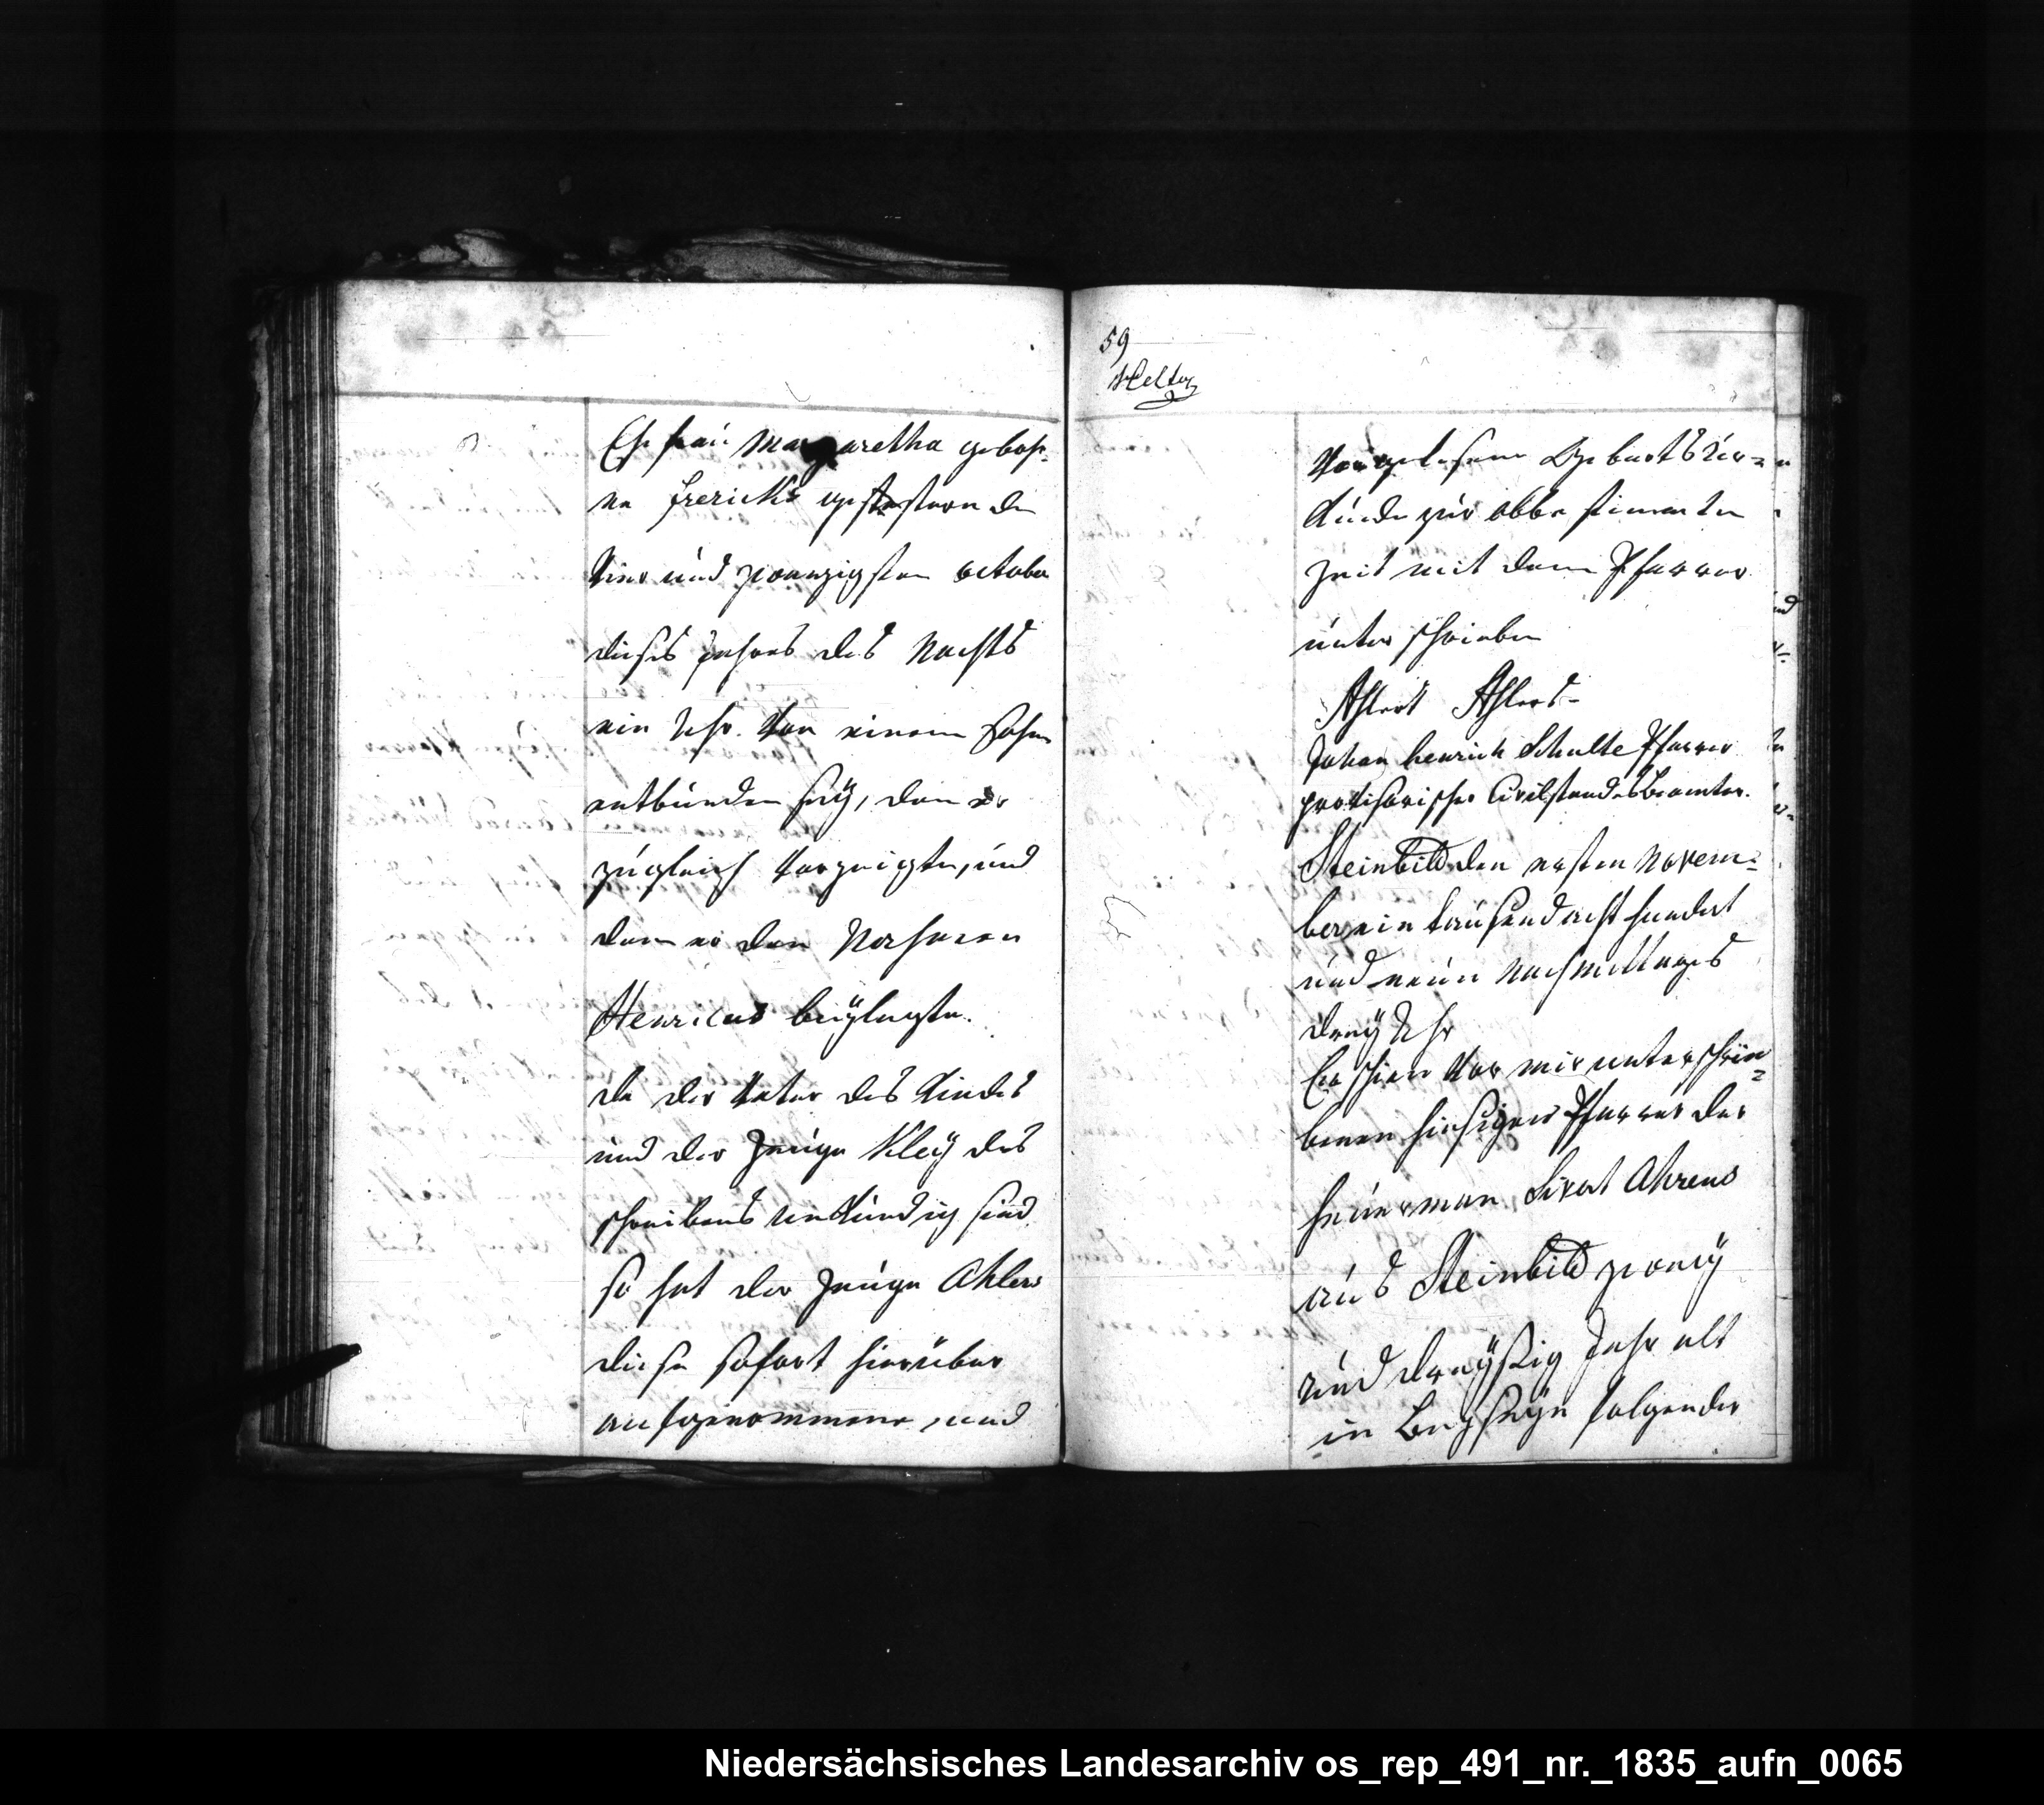 Ehefrau Margaretha gebohr-
ne Frericks gestestern den
vier und zwanzigsten october
dieses Jahres des Nachts
ein Uhr von einem Sohn
entbunden sey, den er
zugleich vorzeigte, und
dem er den Nahmen
Henricus beylegte.
da der Vater des Kindes
und der Zeuge Kley des
schreibens unkündig sind
so hat der Zeuge Ahlers
diese sofort hierüber
aufgenommene, und
59
vorgelesene Geburtsur-
kunde zur obbestimmten
Zeit mit dem Pfarrer
unterschrieben
Ahlert Ahlers
Johan henrich Schulte Pfarrer
provisorischer Civilstandesbeamter.
Steinbild den ersten Novem-
ber ein tausend acht hundert
und neun nachmittages
drey Uhr
Erschien vor mir unterschrie-
benen hiesigen Pfarrer der
heuerman Ahrens
aus Steinbild zwey
und dreyßig Jahr alt
in Beyseyn folgender
Niedersächsisches Landesarchiv os_rep_491_nr._1835_aufn_0065